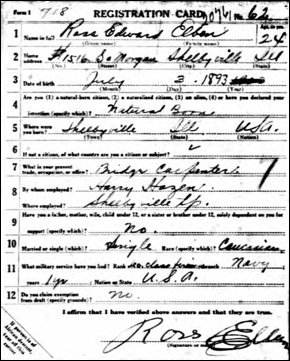 Form 1 718 REGISTRATION CARD No. 62
1 Name in full Ross Edward Ellen Age, in yrs. 24
(Given name) (Family name)
2 Home address #1516 So Morgan Shelbyville Ill
(No.) (Street) (City) (State)
3 Date of birth July 3 1893
(Month) (Day) (Year)
4 Are you (1) a natural-born citizen, (2) a naturalized citizen, (3) an alien, (4) or have you declared your
intention (specify which)? Natural Born
5 Where were you born? Shelbyville Ill USA.
(Town) (State) (Nation)
6 If not a citizen, of what country are you a citizen or subject?
7 What is your present trade, occupation, or office? Bridge Carpenter
8 By whom employed? Harry Hozen
Where employed? Shelbyville Tp.
9 Have you a father, mother, wife, child under 12, or a sister or brother under 12, solely dependent on you for
support (specify which)? No.
10 Married or single (which)? Single Race (specify which)? Caucasian
11 What military service have you had? Rank class branch Navy
years 1 yr Nation or State U.S.A.
12 Do you claim exemption from draft (specify grounds)? No.
I affirm that I have verified above answers and that they are true.
Ross Ellen
(Signature or mark)
If person is of African descent, tear off this corner